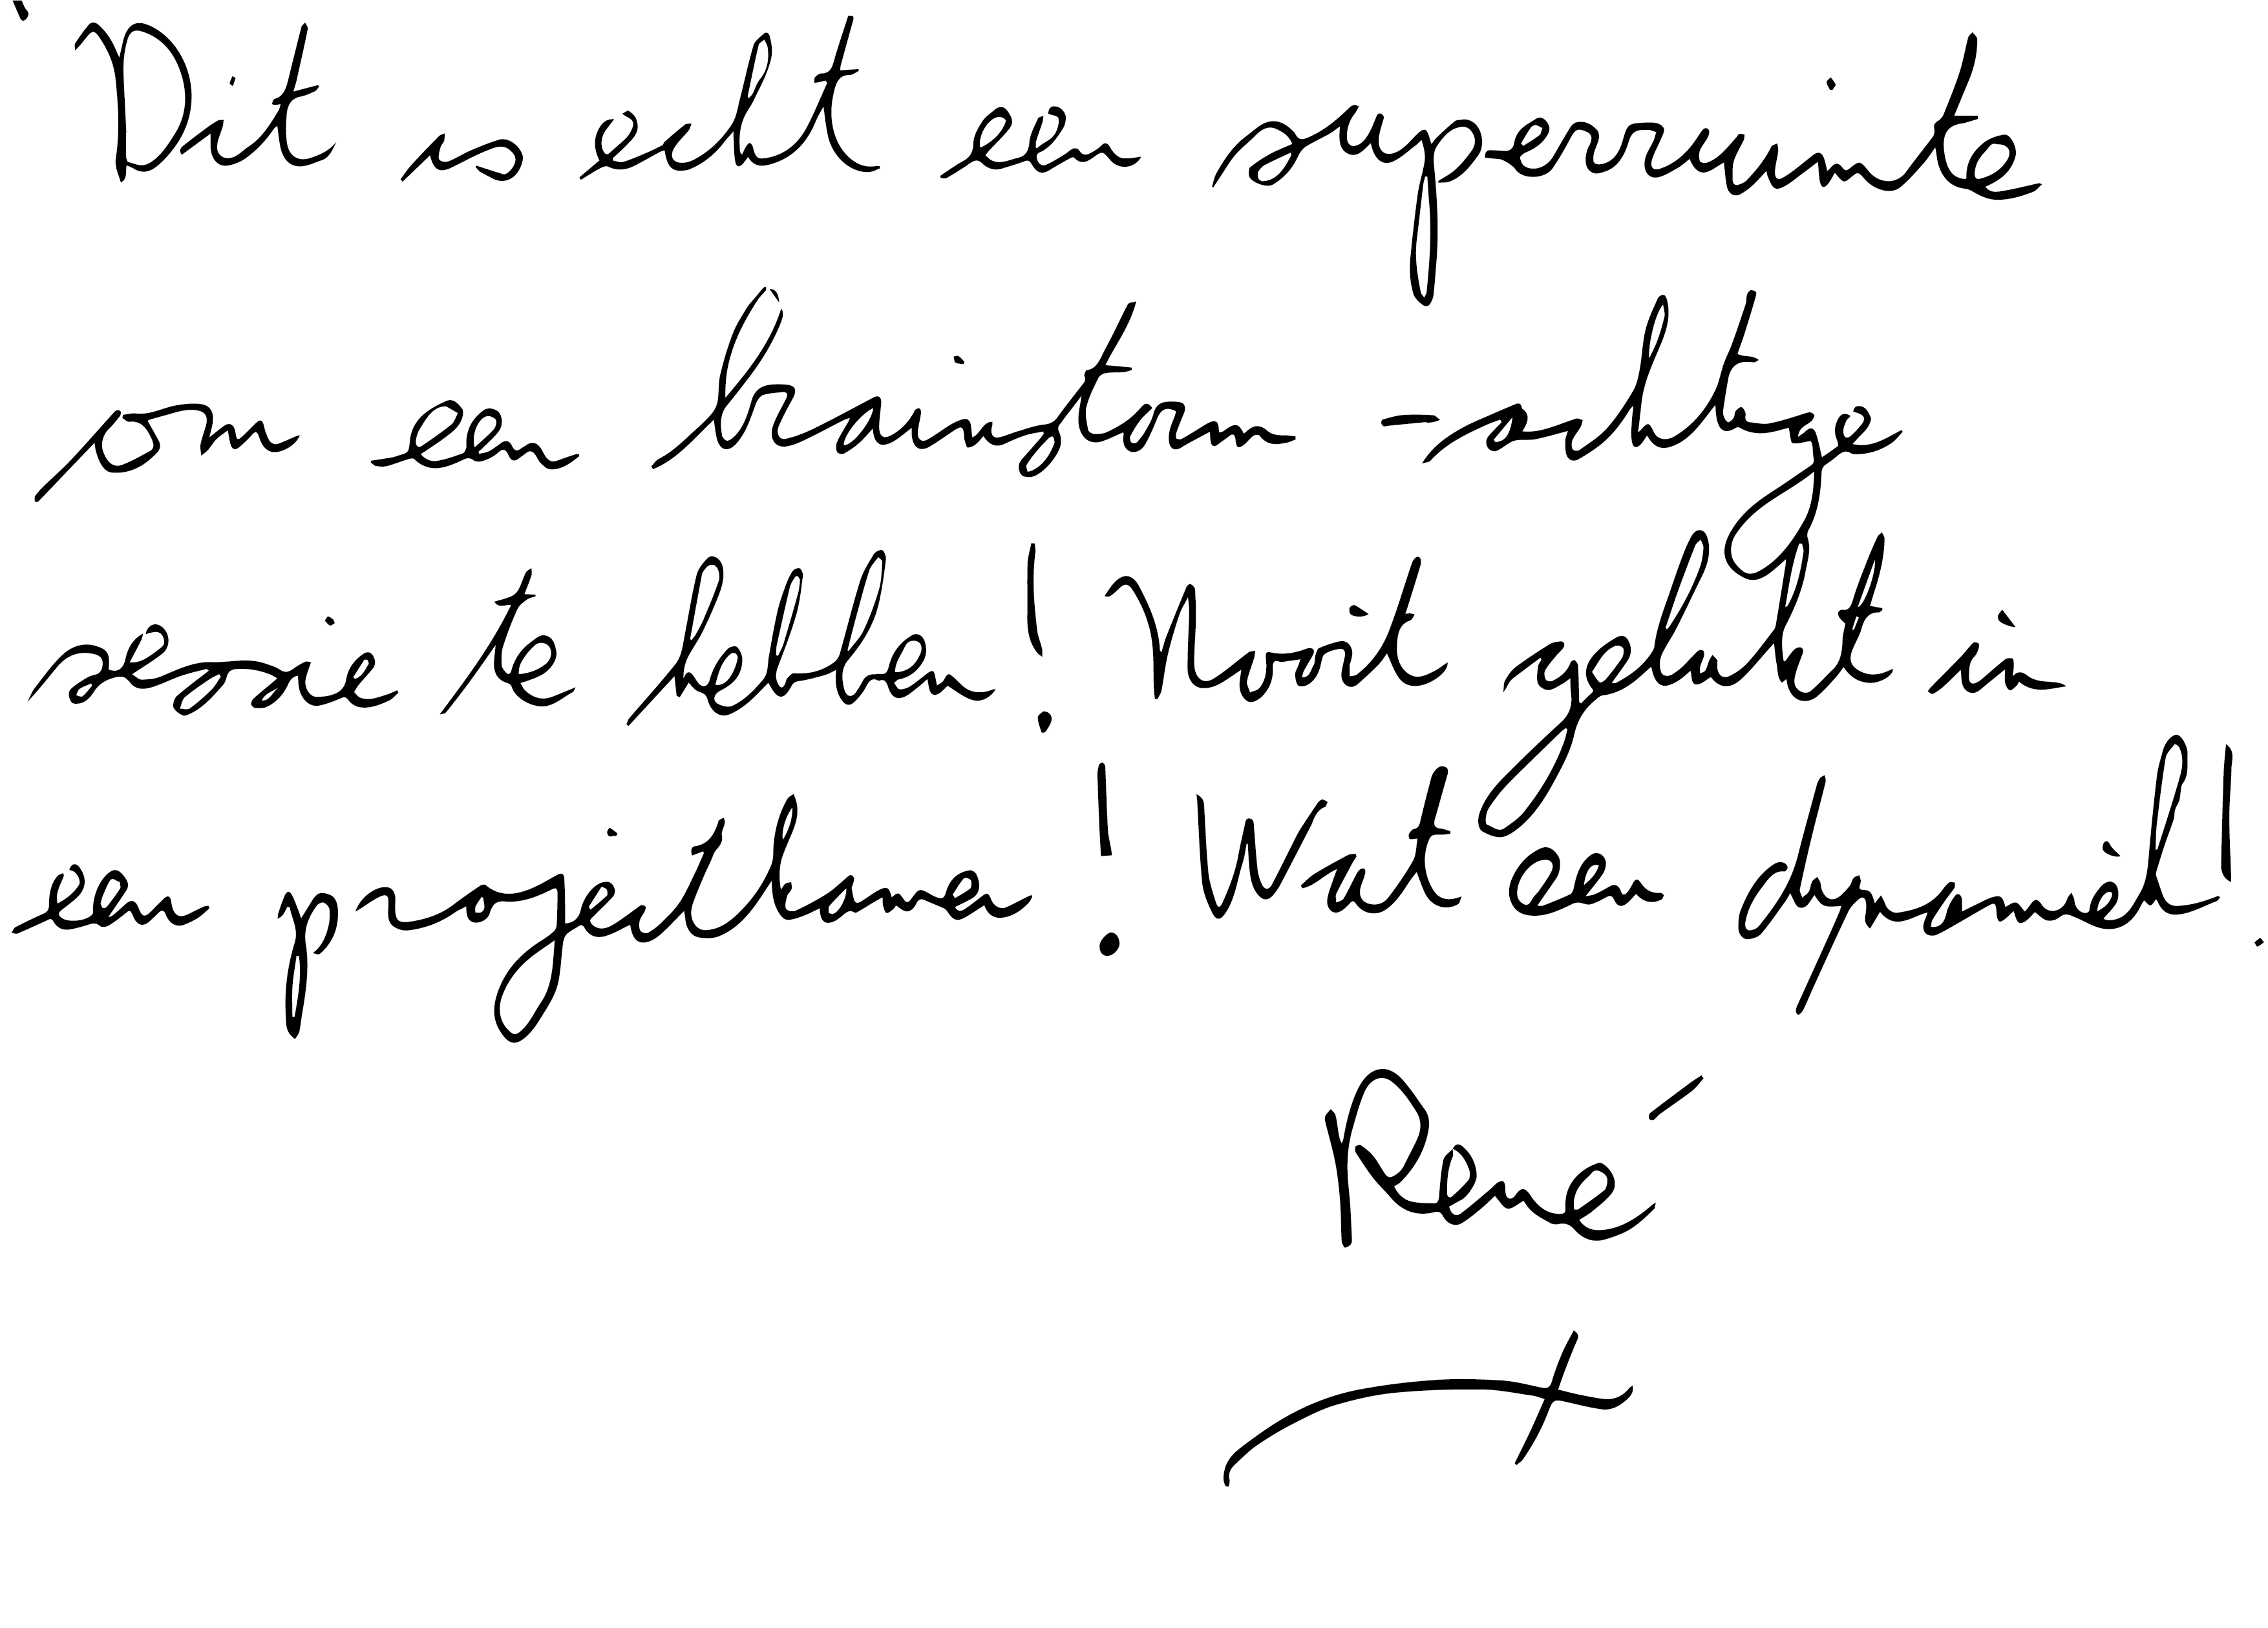 Dit is echt een superruimte
om een brainstorm - achtige
sessie te hebben! Nooit gehad in
een projectkamer! Wat een dynamiek!
René